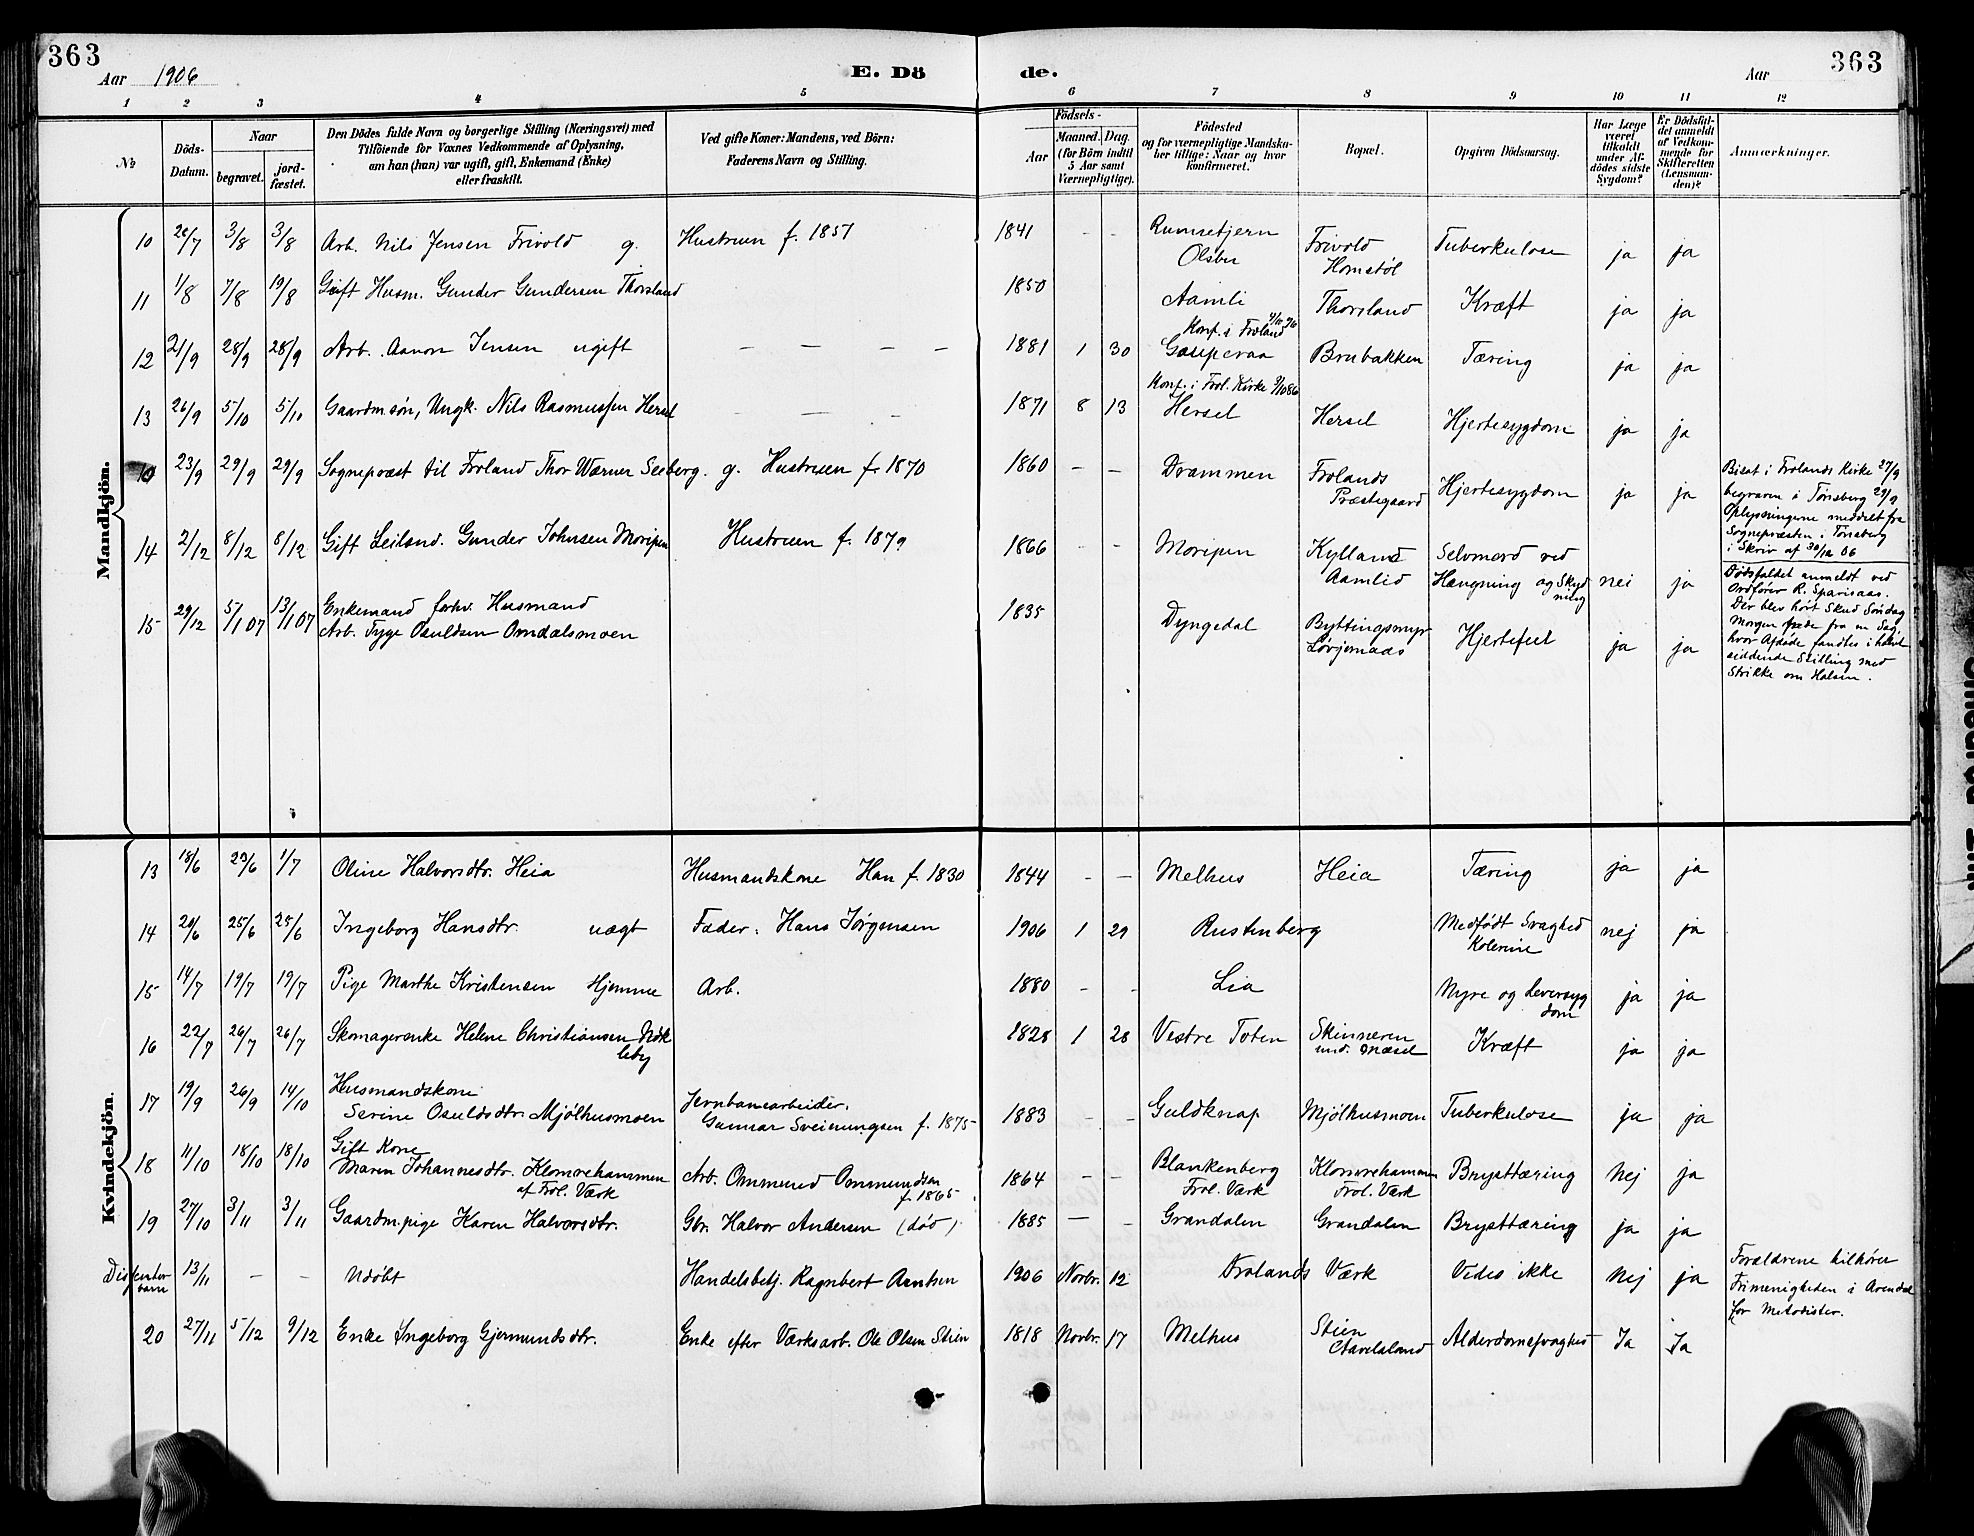 363
Aar 1906
E. Dö
de.
Aar
363
1 2 3 4 5 6 7 8 9 10 11 12
No
Döds-Datum.
Naar
begravet.
jord-fæstet.
Den Dödes fulde Navn og borgerlige Stilling (Næringsvei) med
Tilföiende for Voxnes Vedkommende af Oplysning,
om han (hun) var ugift, gift, Enkemand (Enke)
eller fraskilt.
Ved gifte Koner: Mandens, ved Börn:
Faderens Navn og Stilling.
Födsels-
Aar
Maaned. Dag.
(for Börn indtil
5 Aar samt
Værnepligtige).
Födested
og for værnepligtige Mandska-
ber tillige: Naar og hvor
konfirmeret.
Bopæl.
Opgiven Dödsaarsag.
Har Læge
været
tilkaldt
under Af-
dödes sidste
Sygdom?
Er Dödsfal-
det anmeldt
af Vedkom-
mende for
Skifteretten
(Lensman-
den)?
Anmærkninger.
Mandkjön.
10 28/7 3/8 3/8 Arb. Nils Jensen Frivold g. Hustruen f. 1851 1841 - - Olsbu Frivold Homstøl Tuberkulose ja ja
11 1/8 7/8 19/8 Gift Husm. Gunder Gundersen Thorsland 1850 Aamli Thorsland Kræft ja ja
12 21/9 28/9 28/9 Arb. Aanon Jensen ugift — — — — 1881 1 30 Konf. i Froland Brubakken Tæring ja ja
13 26/9 5/10 5/10 Gaardmsøn, Ungk. Nils Rasmussen Hersel — — — 1871 8 13 Konf. i Frol. Kirke Hersel Hersel Hjertesygdom ja ja
23/9 29/9 29/9 Sognepræst til Froland Thor Wærner Seeberg. g. Hustruen f. 1870 1860 — — Drammen Frolands Præstegaard Hjertesygdom ja ja
Bisat i Frolands Kirke 27/9
begraven i Tønsberg 29/9
Oplysningerne meddelt fra
Sognepræsten i Tønsberg
i Skriv af 30/12 06
14 2/12 8/12 8/12 Gift Leiland. Gunder Johnsen Moripen Hustruen f. 1879 1866 - - Moripen Kylland Aamlid Selvmord ved Hængning og Skydning nei ja
Dødsfaldet anmeldt ved
Ordfører R. Spavisaas.
Der blev hørt Skud Søndag
Morgen fra en Sag,
hvor Afdøde fandtes i halvt
siddende Stilling med
Strikke om Halsen.
15 29/12 5/1 07 13/1 07 Enkemand forhv. Husmand
Arb. Tyge Osuldsen Omdalsmoen 1835 Dyngedal Byttingsmyr Hjertefeil ja ja
Kvindekjön.
13 18/6 23/6 1/7 Oline Halvorsdtr. Heia Husmandskone Han f. 1830 1844 - — Melhus Heia Tæring ja ja
14 20/6 25/6 25/6 Ingeborg Hansdtr. uægt Fader: Hans Jørgensen 1906 1 29 Rustenberg Medfødt Svaghed Kolerine nej ja
15 14/7 19/7 19/7 Pige Marthe Kristensen Hjemme Arb. 1880 - - Lia Nyre og Leversygdom ja ja
16 22/7 26/7 26/7 Skomagerenke Helene Christiansen 1828 1 28 Vestre Toten Skinneren und. Mæsel Kræft ja ja
17 19/9 26/9 14/10 Husmandskone
Serine Osuldsdtr. Mjølhusmoen Jernbanearbeider. Gunnar Sveinungsen f. 1875 1883 — - Guldknap Mjølhusmoen Tuberkulose ja ja
18 11/10 18/10 18/10 Gift Kone
Maren Johannesdtr. Klomrehammen af Frol. Værk Arb. Ommund Ommundsen f. 1865 1864 - - Blankenberg Frol. Værk Klomrehammen Frol. Værk Brysttæring Nej ja
19 27/10 3/11 3/11 Gaardm.pige Karen Halvorsdtr. Gbr. Halvor Andersen (død) 1885 — - Grandalen Grandalen Brysttæring ja ja
Dissenter barn 13/11 — — Udøbt Handelsbetj. Ragnbert Arntsen 1906 Novbr. 12 Frolands Værk Vides ikke Nej ja
Forældrene tilhører
Frimenigheden i Arendal
for Metodister.
20 27/11 5/12 9/12 Enke Ingeborg Gjermundsdtr. Enke efter Værksarb. Ole Olsen Stien 1818 Novbr. 17 Melhus Stien Alderdomssvaghed Ja Ja